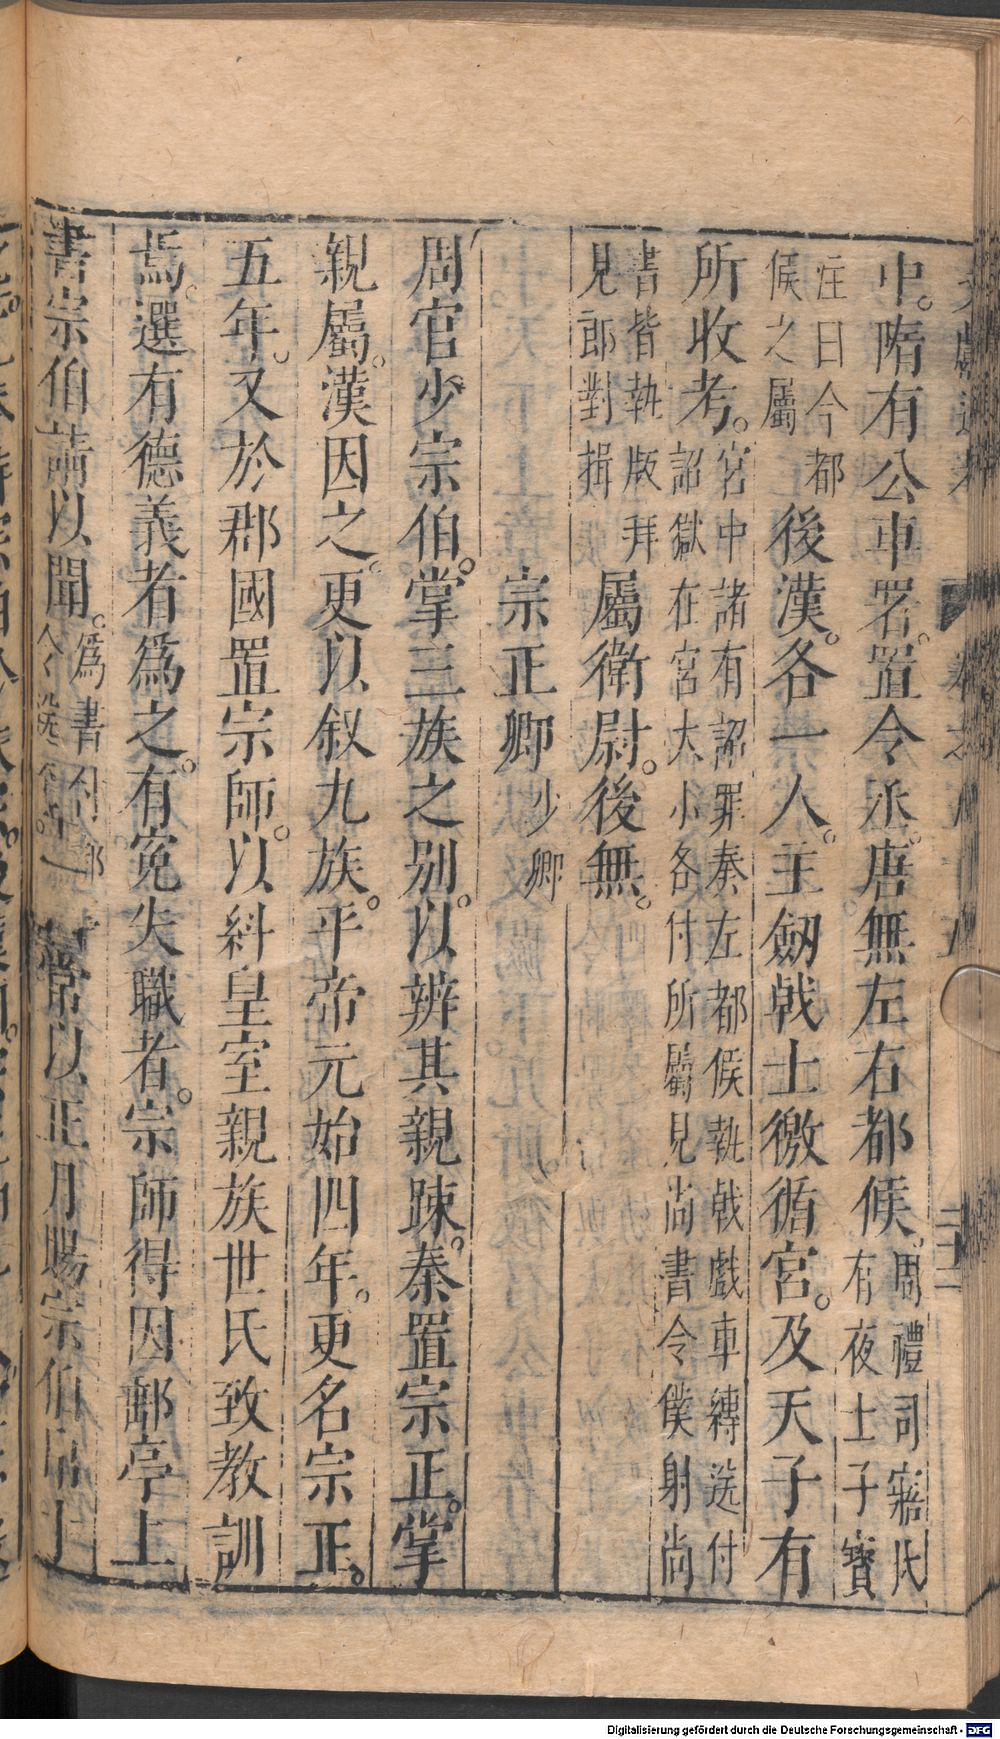 中。隋有公車署。置令丞。唐無左右都候。周禮司寤氏有夜士子寶
注曰今都候之屬後漢。各一人。主劒戟士徼循宮。及天子有
所收考。宮中諸有詔罪奏左都候執戟戲車縛送付詔獄在宮大小各付所屬見尚書令僕射尚
書皆執版拜見郎對揖屬衛尉。後無。
宗正卿少卿
周官少宗伯。掌三族之别。以辨其親踈。秦置宗正。掌
親屬。漢因之。更以叙九族。平帝元始四年。更名宗正。
五年。又於郡國置宗師。以糾皇室親族世氏致教訓
焉。選有德義者爲之。有寃失職者。宗師得因郵亭上
書宗伯請以聞。爲書付郵令 常以正月賜宗伯帛十
Digitalisierung gefördert durch die Deutsche Forschungsgemeinschaft - DFG